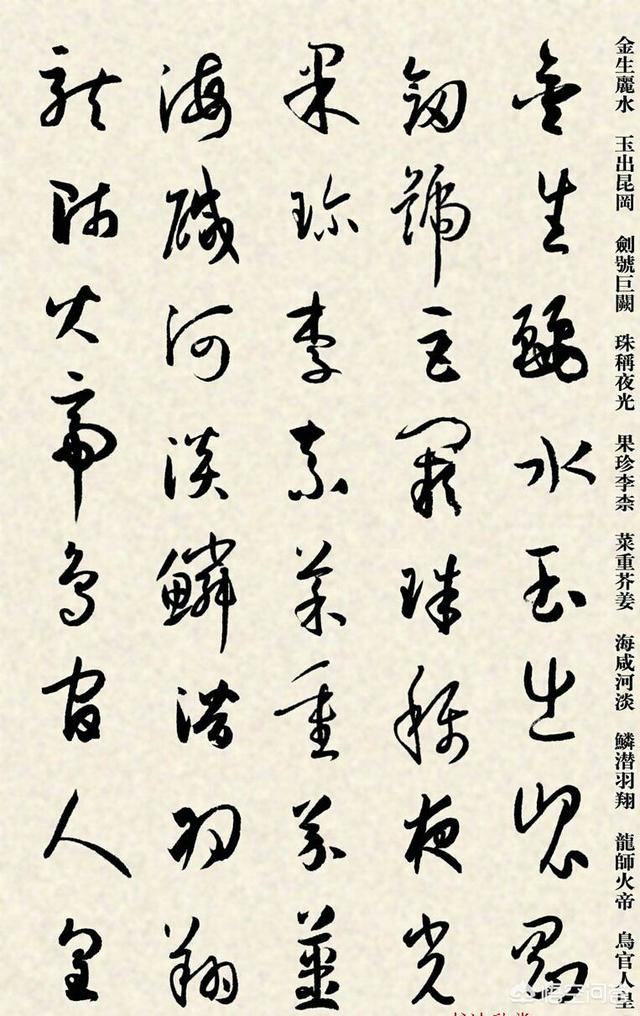 金生麗水 玉出昆岡 劍號巨闕 珠稱夜光 果珍李柰 菜重芥姜 海咸河淡 鱗潜羽翔 龍師火帝 鳥官人皇
金生麗水玉出崑岡
劍號巨闕珠稱夜光
果珍李柰菜重芥薑
海鹹河淡鱗潛羽翔
龍師火帝鳥官人皇
悟空问答